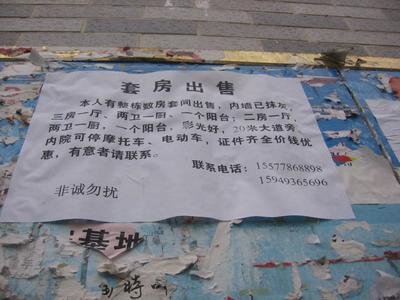 套房出售
本人有整栋数房套间出售，内墙已抹灰，
三房一厅、两卫一厨、一个阳台；二房一厅，
两卫一厨，一个阳台，彩光好，20米大道旁
内院可停摩托车、电动车，证件齐全价钱优
惠，有意者请联系。
联系电话：15577868898
15949365696
非诚勿扰
基地